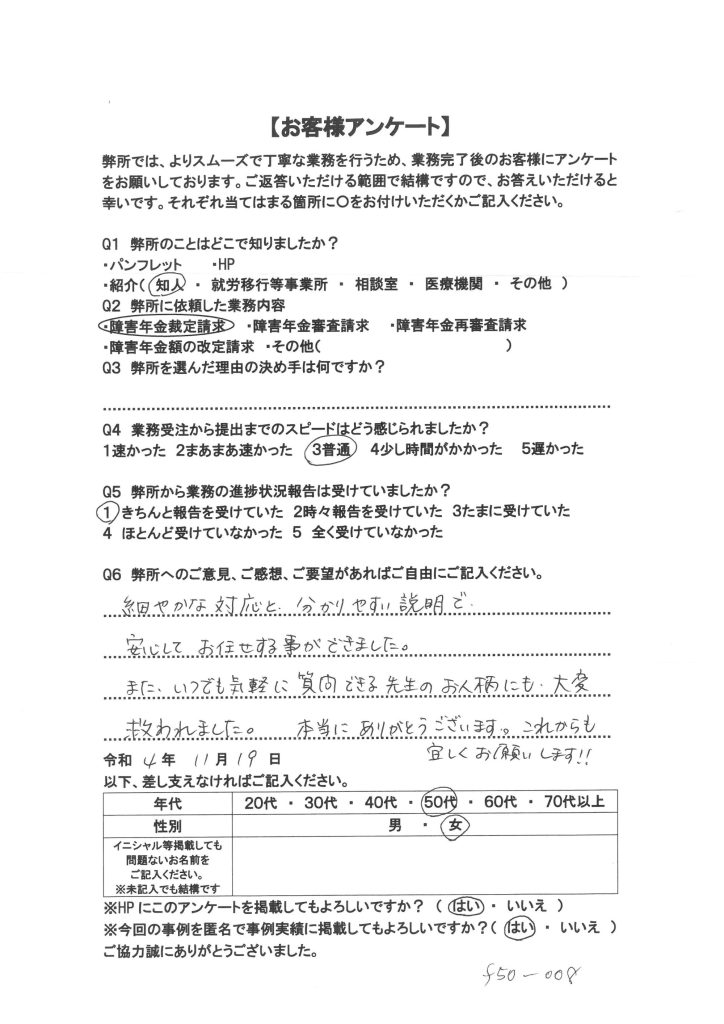 【お客様アンケート】
弊所では、よりスムーズで丁寧な業務を行うため、業務完了後のお客様にアンケート
をお願いしております。ご返答いただける範囲で結構ですので、お答えいただけると
幸いです。それぞれ当てはまる箇所に〇をお付けいただくかご記入ください。
Q1 弊所のことはどこで知りましたか？
・パンフレット ・HP
・紹介( 知人 ・ 就労移行等事業所 ・ 相談室 ・ 医療機関 ・ その他 )
Q2 弊所に依頼した業務内容
・障害年金裁定請求 ・障害年金審査請求 ・障害年金再審査請求
・障害年金額の改定請求 ・その他( )
Q3 弊所を選んだ理由の決め手は何ですか？
Q4 業務受注から提出までのスピードはどう感じられましたか？
1速かった 2まあまあ速かった 3普通 4少し時間がかかった 5遅かった
Q5 弊所から業務の進捗状況報告は受けていましたか？
1 きちんと報告を受けていた 2時々報告を受けていた 3たまに受けていた
4 ほとんど受けていなかった 5 全く受けていなかった
Q6 弊所へのご意見、ご感想、ご要望があればご自由にご記入ください。
細やかな対応と、分かりやすい説明で、
安心して お任せする事ができました。
また、いつでも気軽に質問できる先生のお人柄にも、大変
救われました。 本当にありがとうございます。これからも
宜しくお願いします!!
令和 4 年 11 月 19 日
以下、差し支えなければご記入ください。
年代 20代 ・ 30代 ・ 40代 ・ 50代 ・ 60代 ・ 70代以上
性別 男 ・ 女
イニシャル等掲載しても
問題ないお名前を
ご記入ください。
※未記入でも結構です
※HPにこのアンケートを掲載してもよろしいですか？ ( はい ・ いいえ )
※今回の事例を匿名で事例実績に掲載してもよろしいですか？( はい ・ いいえ )
ご協力誠にありがとうございました。
f50-008